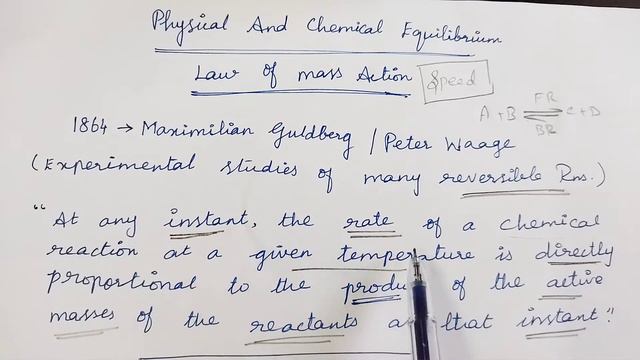 Physical And Chemical Equilibrium
Law of mass Action
Speed
FR
A + B ⇌ C + D
BR
1864 → Maximilian Guldberg / Peter Waage
(Experimental studies of many reversible Rns.)
"At any instant, the rate of a chemical
reaction at a given temperature is directly
proportional to the produ of the active
masses of the reactants a that instant."